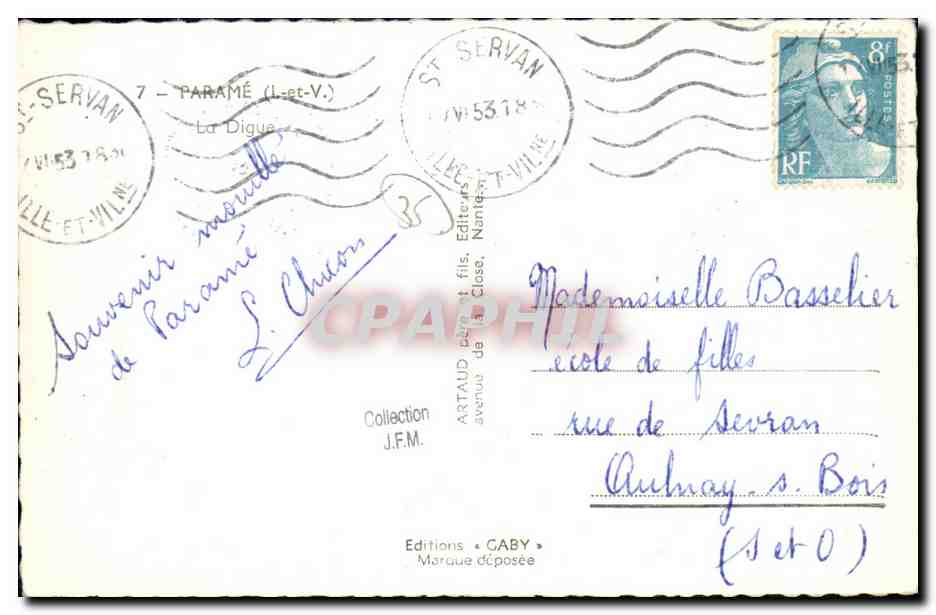 7 - PARAMÉ (I.-et-V.)
La Digue
ST-SERVAN
VI 53
ILLE-ET-VILNE
ST SERVAN
VI 53 18
ILLE-ET-VILNE
8f
POSTES
RF
Souvenir mouillé
de Paramé
35
Collection
J.F.M.
ARTAUD père et fils, Editeurs
avenue de la Close, Nantes
CPAPHIL
Mademoiselle Basselier
école de filles
rue de Sevran
Aulnay-s-Bois
(S et O)
Editions « GABY »
Marque déposée